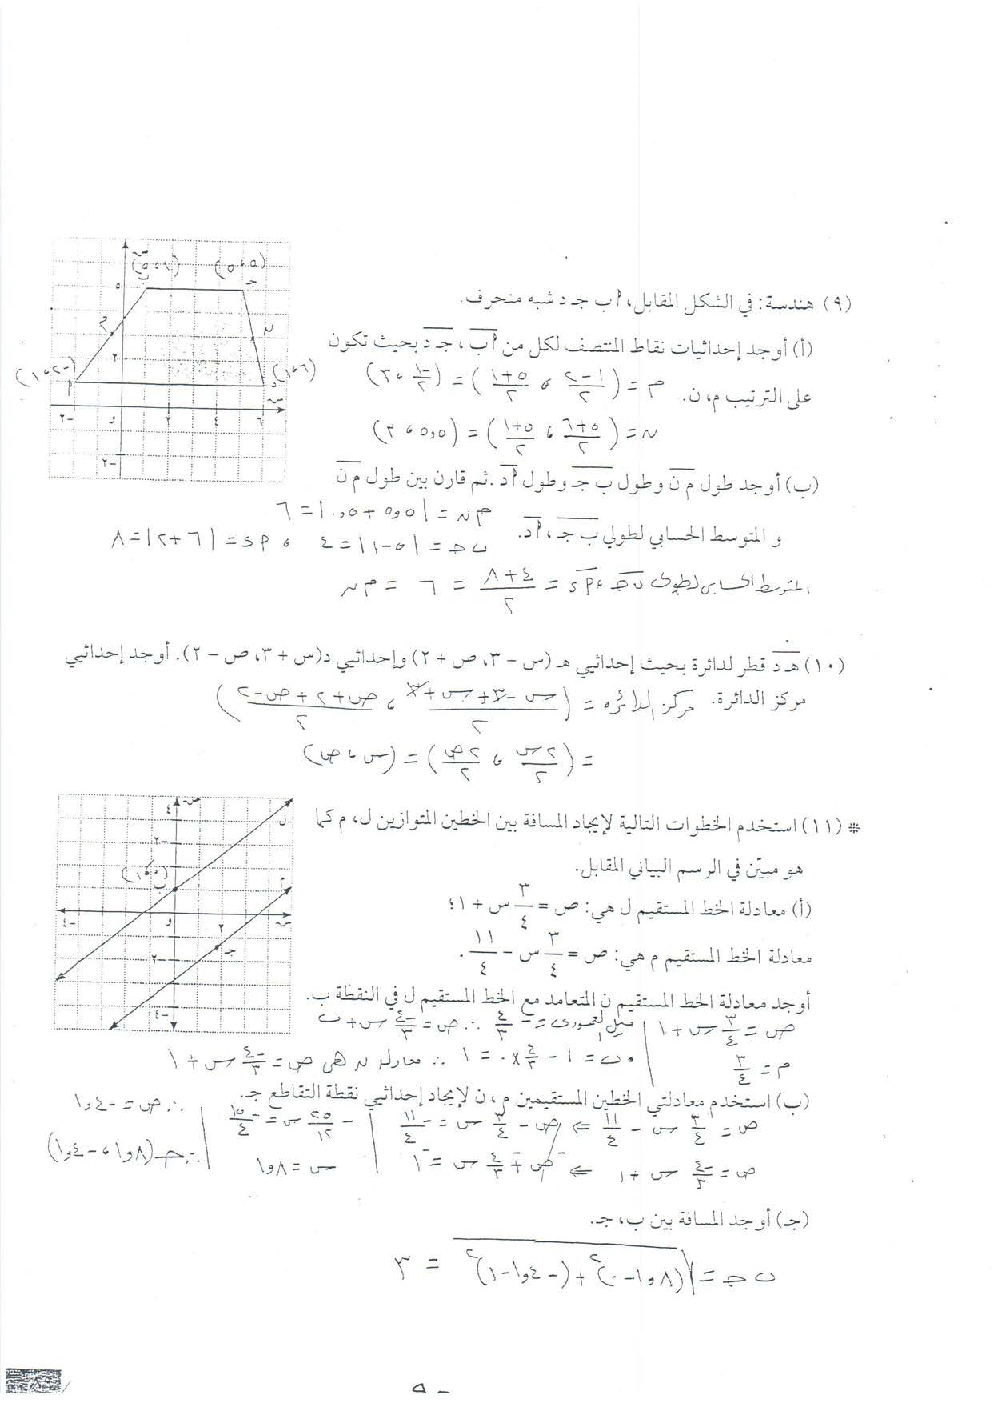 (٩) هندسة: في الشكل المقابل، أ ب جـ د شبه منحرف.
(أ) أوجد إحداثيات نقاط المنتصف لكل من أب، جـ د بحيث تكون
على الترتيب م، ن. م = (١-٢/٢ ، ٥+١/٢) = (-١/٢ ، ٣)
ن = (٥+٦/٢ ، ٥+١/٢) = (٥,٥ ، ٣)
(ب) أوجد طول م ن وطول ب جـ وطول أ د. ثم قارن بين طول م ن
م ن = |٥,٥ + ٠,٥| = ٦
و المتوسط الحسابي لطولي ب جـ، أ د.
ب جـ = |٥-١| = ٤ ، أ د = |٦+٢| = ٨
المتوسط الحسابي لطولي ب جـ ، أ د = ٤+٨/٢ = ٦ = م ن
(١٠) هـ د قطر لدائرة بحيث إحداثيي هـ (س - ٣، ص + ٢) وإحداثيي د(س + ٣، ص - ٢). أوجد إحداثيي
مركز الدائرة. مركز الدائره = (س-٣+س+٣/٢ ، ص+٢+ص-٢/٢)
= (٢س/٢ ، ٢ص/٢) = (س ، ص)
* (١١) استخدم الخطوات التالية لإيجاد المسافة بين الخطين المتوازين ل، م كما
هو مبيّن في الرسم البياني المقابل.
(أ) معادلة الخط المستقيم ل هي: ص = ٣/٤ س + ١؛
معادلة الخط المستقيم م هي: ص = ٣/٤ س - ١١/٤.
أوجد معادلة الخط المستقيم ن المتعامد مع الخط المستقيم ل في النقطة ب.
ص = ٣/٤ س + ١ ميل العمودى = -٤/٣ ∴ ص = -٤/٣ س + ب
م = ٣/٤ ب = ١ - ٤/٣ × ٠ = ١ ∴ معادلة ن هى ص = -٤/٣ س + ١
(ب) استخدم معادلتي الخطين المستقيمين م، ن لإيجاد إحداثيي نقطة التقاطع جـ.
ص = ٣/٤ س - ١١/٤ ⇐ ص - ٣/٤ س = -١١/٤ -٢٥/١٢ س = -١٥/٤ ∴ ص = -١,٤
ص = -٤/٣ س + ١ ⇐ ص + ٤/٣ س = ١ س = ١,٨ ∴ جـ (١,٨ ، -١,٤)
(جـ) أوجد المسافة بين ب، جـ.
ب جـ = √(١,٨-٠)٢ + (-١,٤-١)٢ = ٣